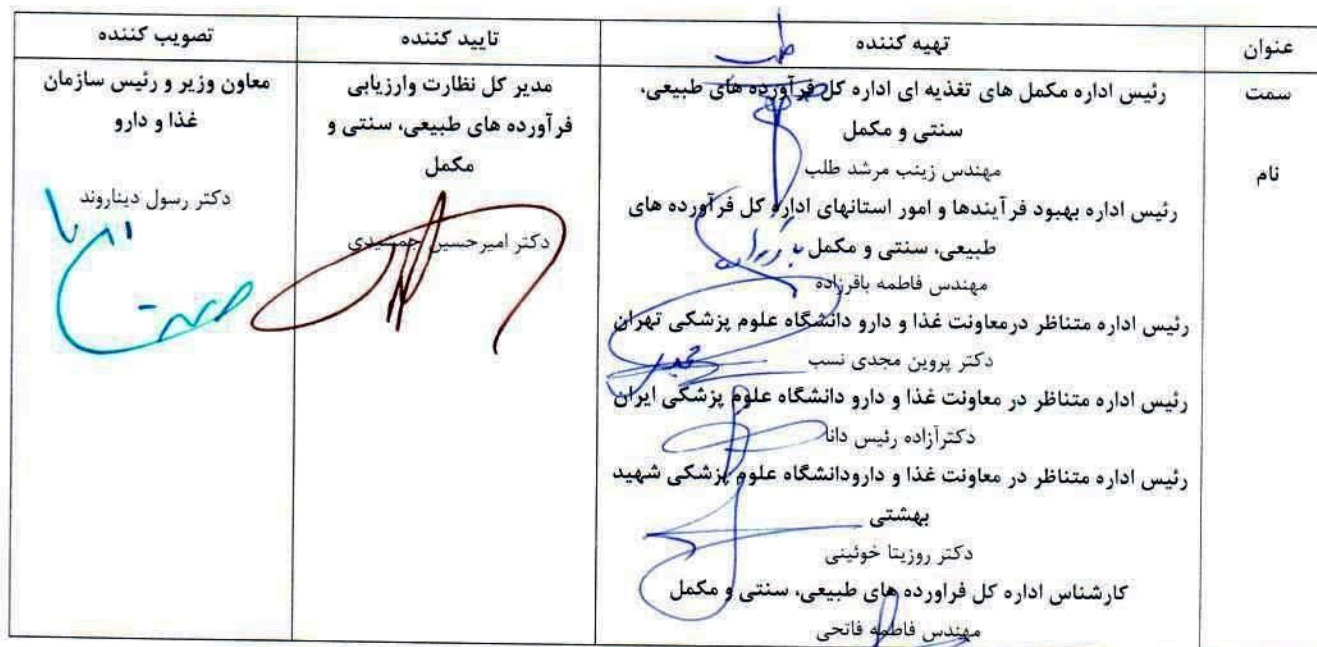 عنوان
تهیه کننده
تایید کننده
تصویب کننده
سمت
نام
رئیس اداره مکمل های تغذیه ای اداره کل فرآورده های طبیعی،
سنتی و مکمل
مهندس زینب مرشد طلب
رئیس اداره بهبود فرآیندها و امور استانهای اداره کل فرآورده های
طبیعی، سنتی و مکمل
مهندس فاطمه باقرزاده
رئیس اداره متناظر درمعاونت غذا و دارو دانشگاه علوم پزشکی تهران
دکتر پروین مجدی نسب
رئیس اداره متناظر در معاونت غذا و دارو دانشگاه علوم پزشکی ایران
دکترآزاده رئیس دانا
رئیس اداره متناظر در معاونت غذا و دارودانشگاه علوم پزشکی شهید
بهشتی
دکتر روزیتا خوئینی
کارشناس اداره کل فراورده های طبیعی، سنتی و مکمل
مهندس فاطمه فاتحی
مدیر کل نظارت وارزیابی
فرآورده های طبیعی، سنتی و
مکمل
دکتر امیرحسین جمشیدی
معاون وزیر و رئیس سازمان
غذا و دارو
دکتر رسول دیناروند